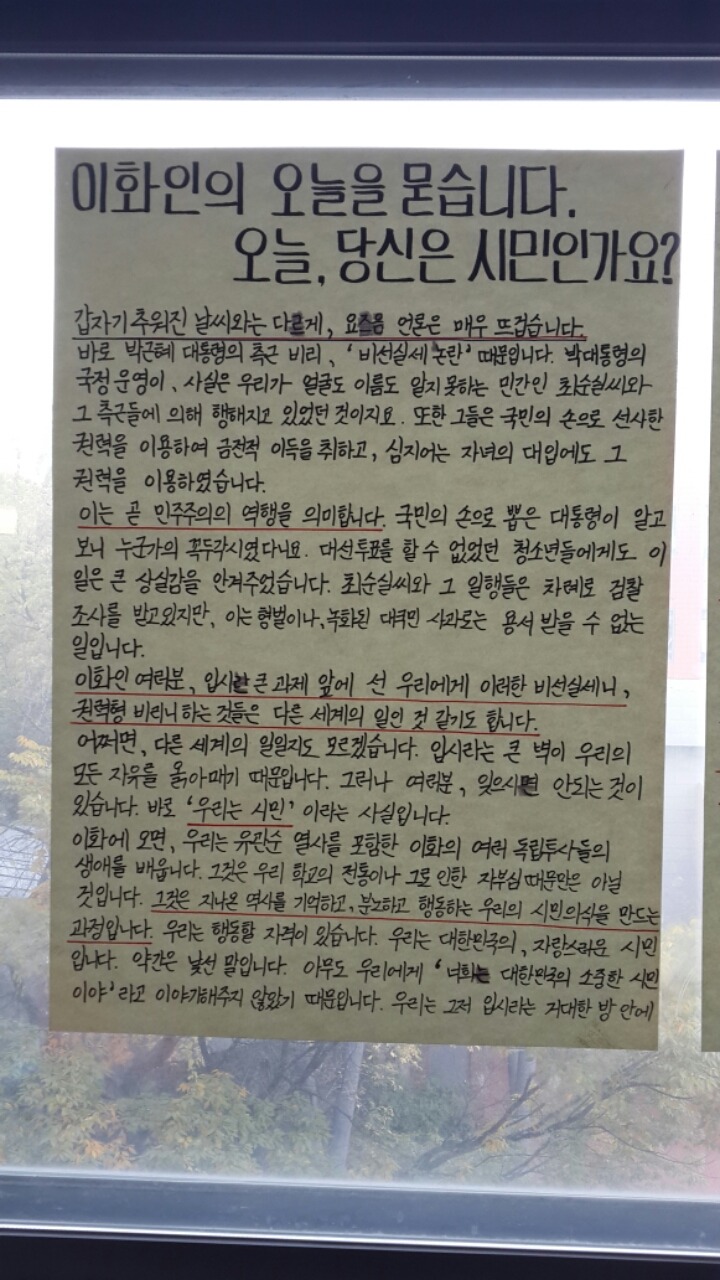 이화인의 오늘을 묻습니다.
오늘, 당신은 시민인가요?
갑자기 추워진 날씨와는 다르게, 요즈음 언론은 매우 뜨겁습니다.
바로 박근혜 대통령의 측근 비리, '비선실세 논란' 때문입니다. 박대통령의
국정 운영이, 사실은 우리가 얼굴도 이름도 알지 못하는 민간인 최순실씨와
그 측근들에 의해 행해지고 있었던 것이지요. 또한 그들은 국민의 손으로 선사한
권력을 이용하여 금전적 이득을 취하고, 심지어는 자녀의 대입에도 그
권력을 이용하였습니다.
이는 곧 민주주의의 역행을 의미합니다. 국민의 손으로 뽑은 대통령이 알고
보니 누군가의 꼭두각시였다니요. 대선투표를 할 수 없었던 청소년들에게도 이
일은 큰 상실감을 안겨주었습니다. 최순실씨와 그 일행들은 차례로 검찰
조사를 받고있지만, 이는 형벌이나, 녹화된 대국민 사과로는 용서 받을 수 없는
일입니다.
이화인 여러분, 입시란 큰 과제 앞에 선 우리에게 이러한 비선실세니,
권력형 비리니 하는 것들은 다른 세계의 일인 것 같기도 합니다.
어쩌면, 다른 세계의 일일지도 모르겠습니다. 입시라는 큰 벽이 우리의
모든 자유를 옭아매기 때문입니다. 그러나 여러분, 잊으시면 안되는 것이
있습니다. 바로 '우리는 시민' 이라는 사실입니다.
이화에 오면, 우리는 유관순 열사를 포함한 이화의 여러 독립투사들의
생애를 배웁니다. 그것은 우리 학교의 전통이나 그로 인한 자부심 때문만은 아닐
것입니다. 그것은 지나온 역사를 기억하고, 분노하고 행동하는 우리의 시민의식을 만드는
과정입니다. 우리는 행동할 자격이 있습니다. 우리는 대한민국의, 자랑스러운 시민
입니다. 약간은 낯선 말입니다. 아무도 우리에게 '너희는 대한민국의 소중한 시민
이야' 라고 이야기해주지 않았기 때문입니다. 우리는 그저 입시라는 거대한 방 안에